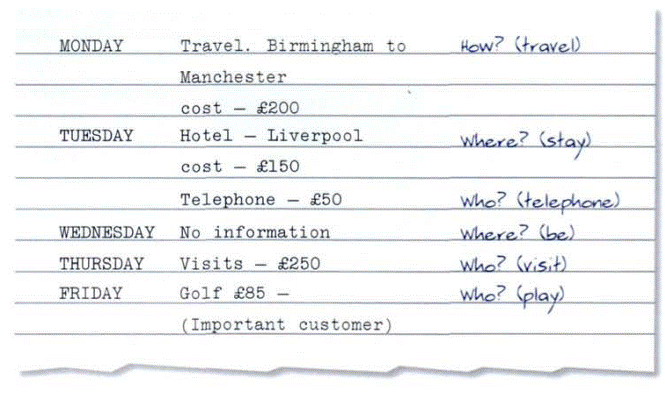 MONDAY Travel. Birmingham to How? (travel)
Manchester
cost – £200
TUESDAY Hotel – Liverpool Where? (stay)
cost – £150
Telephone – £50 Who? (telephone)
WEDNESDAY No information Where? (be)
THURSDAY Visits – £250 Who? (visit)
FRIDAY Golf £85 – Who? (play)
(Important customer)